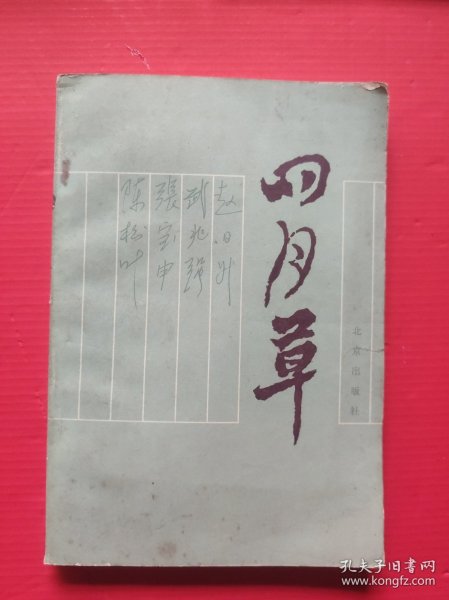 四月草
北京出版社
赵日升
武兆强
張宝申
陳松叶
孔夫子旧书网
www.kongfz.com